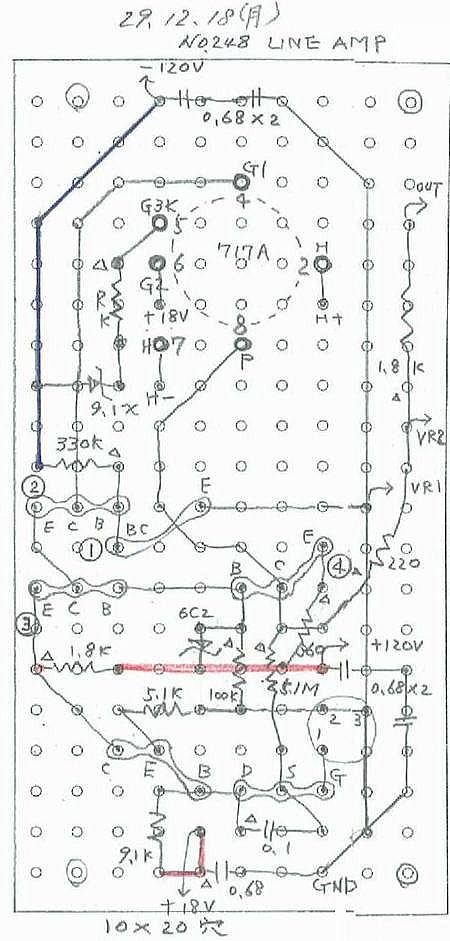 29.12.18(月)
No.248 LINE AMP
-120V
0.68×2
G1
4
OUT
G3K
5
717A
6
G2
H
2
R
K
+18V
H+
H 7
8
P
1.8K
9.1X
H-
VR2
330K
VR1
②
E C B
BC
E
①
E
④
B
C
220
E C B
③
6C2
1.8K
+120V
0.68×2
5.1K
100K
5.1M
2 3
1
C E B
D S G
9.1K
0.1
0.68
GND
+18V
10×20 穴